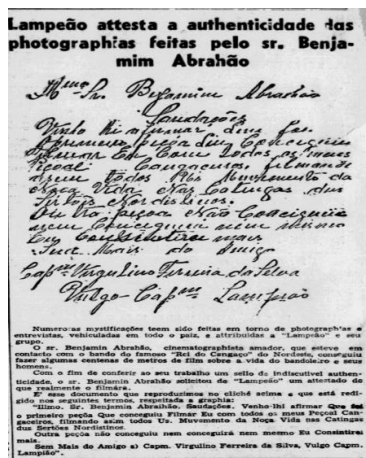 Lampeão attesta a authenticidade das
photographias feitas pelo sr. Benja-
mim Abrahão
Illmo Sr. Bejamim Abrahão
Saudações
Venho lhi afirmar que foi
a primeira peçôa que conceguiu
filmar Eu com todos os meus
peçoal Cangaceiros, filmando
assim todos os muvimento da
noça vida nas Catingas dos
Sertões Nordistinos.
Outra peçôa não conciguiu
nem conciguirá nem mesmo
Eu consintirei mais
Sem mais do amigo
Capm Virgulino Ferreira da Silva
Vulgo Capm Lampião
Numerosas mystificações teem sido feitas em torno de photographias e
entrevistas, vehiculadas em todo o paiz, e attribuidas a "Lampeão" e seu
grupo.
O sr. Benjamin Abrahão, cinematographista amador, que esteve em
contacto com o bando do famoso "Rei do Cangaço" do Nordeste, conseguiu
fazer algumas centenas de metros de film sobre a vida do bandoleiro e seus
homens.
Com o fim de conferir ao seu trabalho um sello de indiscutivel authen-
ticidade, o sr. Benjamin Abrahão solicitou de "Lampeão" um attestado de
que realmente o filmára.
E' esse documento que reproduzimos no cliché acima e que está redi-
gido nos seguintes termos, respeitada a graphia:
"Illmo. Sr. Benjamin Abrahão, Saudações, Venho-lhi afirmar Que foi
o primeiro peçôa Que conceguiu Filmar Eu com todos o meus Peçoal Can-
gaceiros, filmando assim todos Us. Muvimento da Noça Vida nas Catingas
das Sertões Nordistinos.
Outra peçôa não conceguiu nem conceguirá nem mesmo Eu Consintirei
mais.
Sem Mais do Amigo a) Capm. Virgulino Ferreira da Silva, Vulgo Capm.
Lampião".